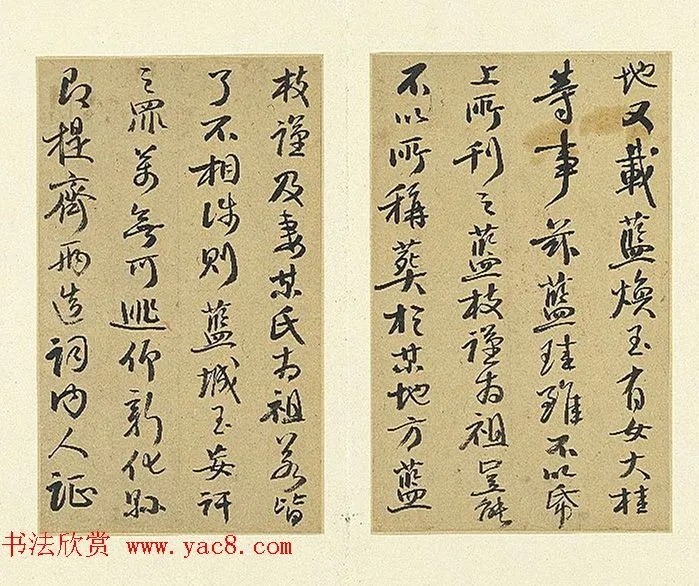 地又載藍煥玉有女大桂
等事茲藍雖不以
上所刊之藍枝謹為祖豈能
不以所稱葬於某地方藍
枝謹及妻某氏為祖若皆
了不相涉則藍城玉妄訐
之罪萬無可逃仰新化縣
即提齊兩造詞內人証
书法欣赏 www.yac8.com